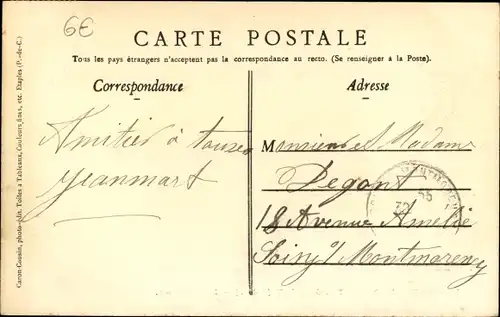 6€
CARTE POSTALE
Tous les pays étrangers n'acceptent pas la correspondance au recto. (Se renseigner à la Poste).
Correspondance
Adresse
Caron-Cousin, photo-édit. Toiles à Tableaux, Couleurs fines, etc. Etaples (P.-de-C.)
Amitiés à tous
Jeanmart
Monsieur et Madame
Degant
18 Avenue Amélie
Soisy s/ Montmorency